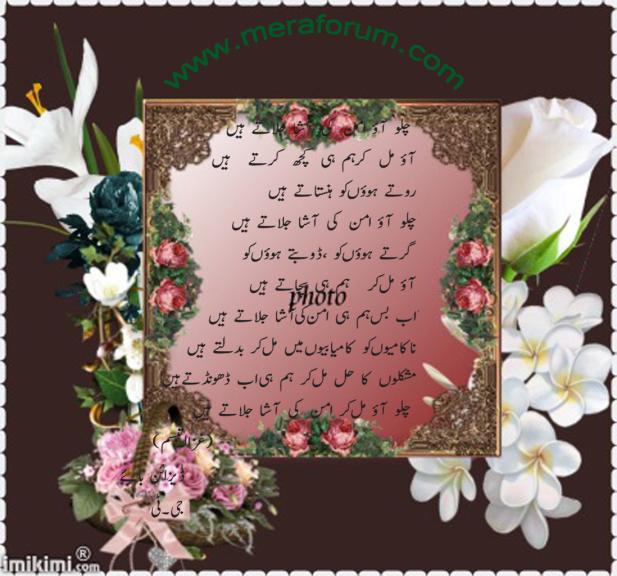 www.meraforum.com
چلو آؤ امن کی آشا جلاتے ہیں
آؤ مل کرہم ہی کچھ کرتے ہیں
روتے ہوؤں کو ہنساتے ہیں
چلو آؤ امن کی آشا جلاتے ہیں
گرتے ہوؤں کو ،ڈوبتے ہوؤں کو
آؤ مل کر ہم ہی بچاتے ہیں
photo
اب بس ہم ہی امن کی آشا جلاتے ہیں
ناکامیوں کو کامیابیوں میں مل کر بدلتے ہیں
مشکلوں کا حل مل کر ہم ہی اب ڈھونڈتے ہیں
چلو آؤ مل کر امن کی آشا جلاتے ہیں
ڈیزائن بائے
جی۔ٹی
imikimi.com®